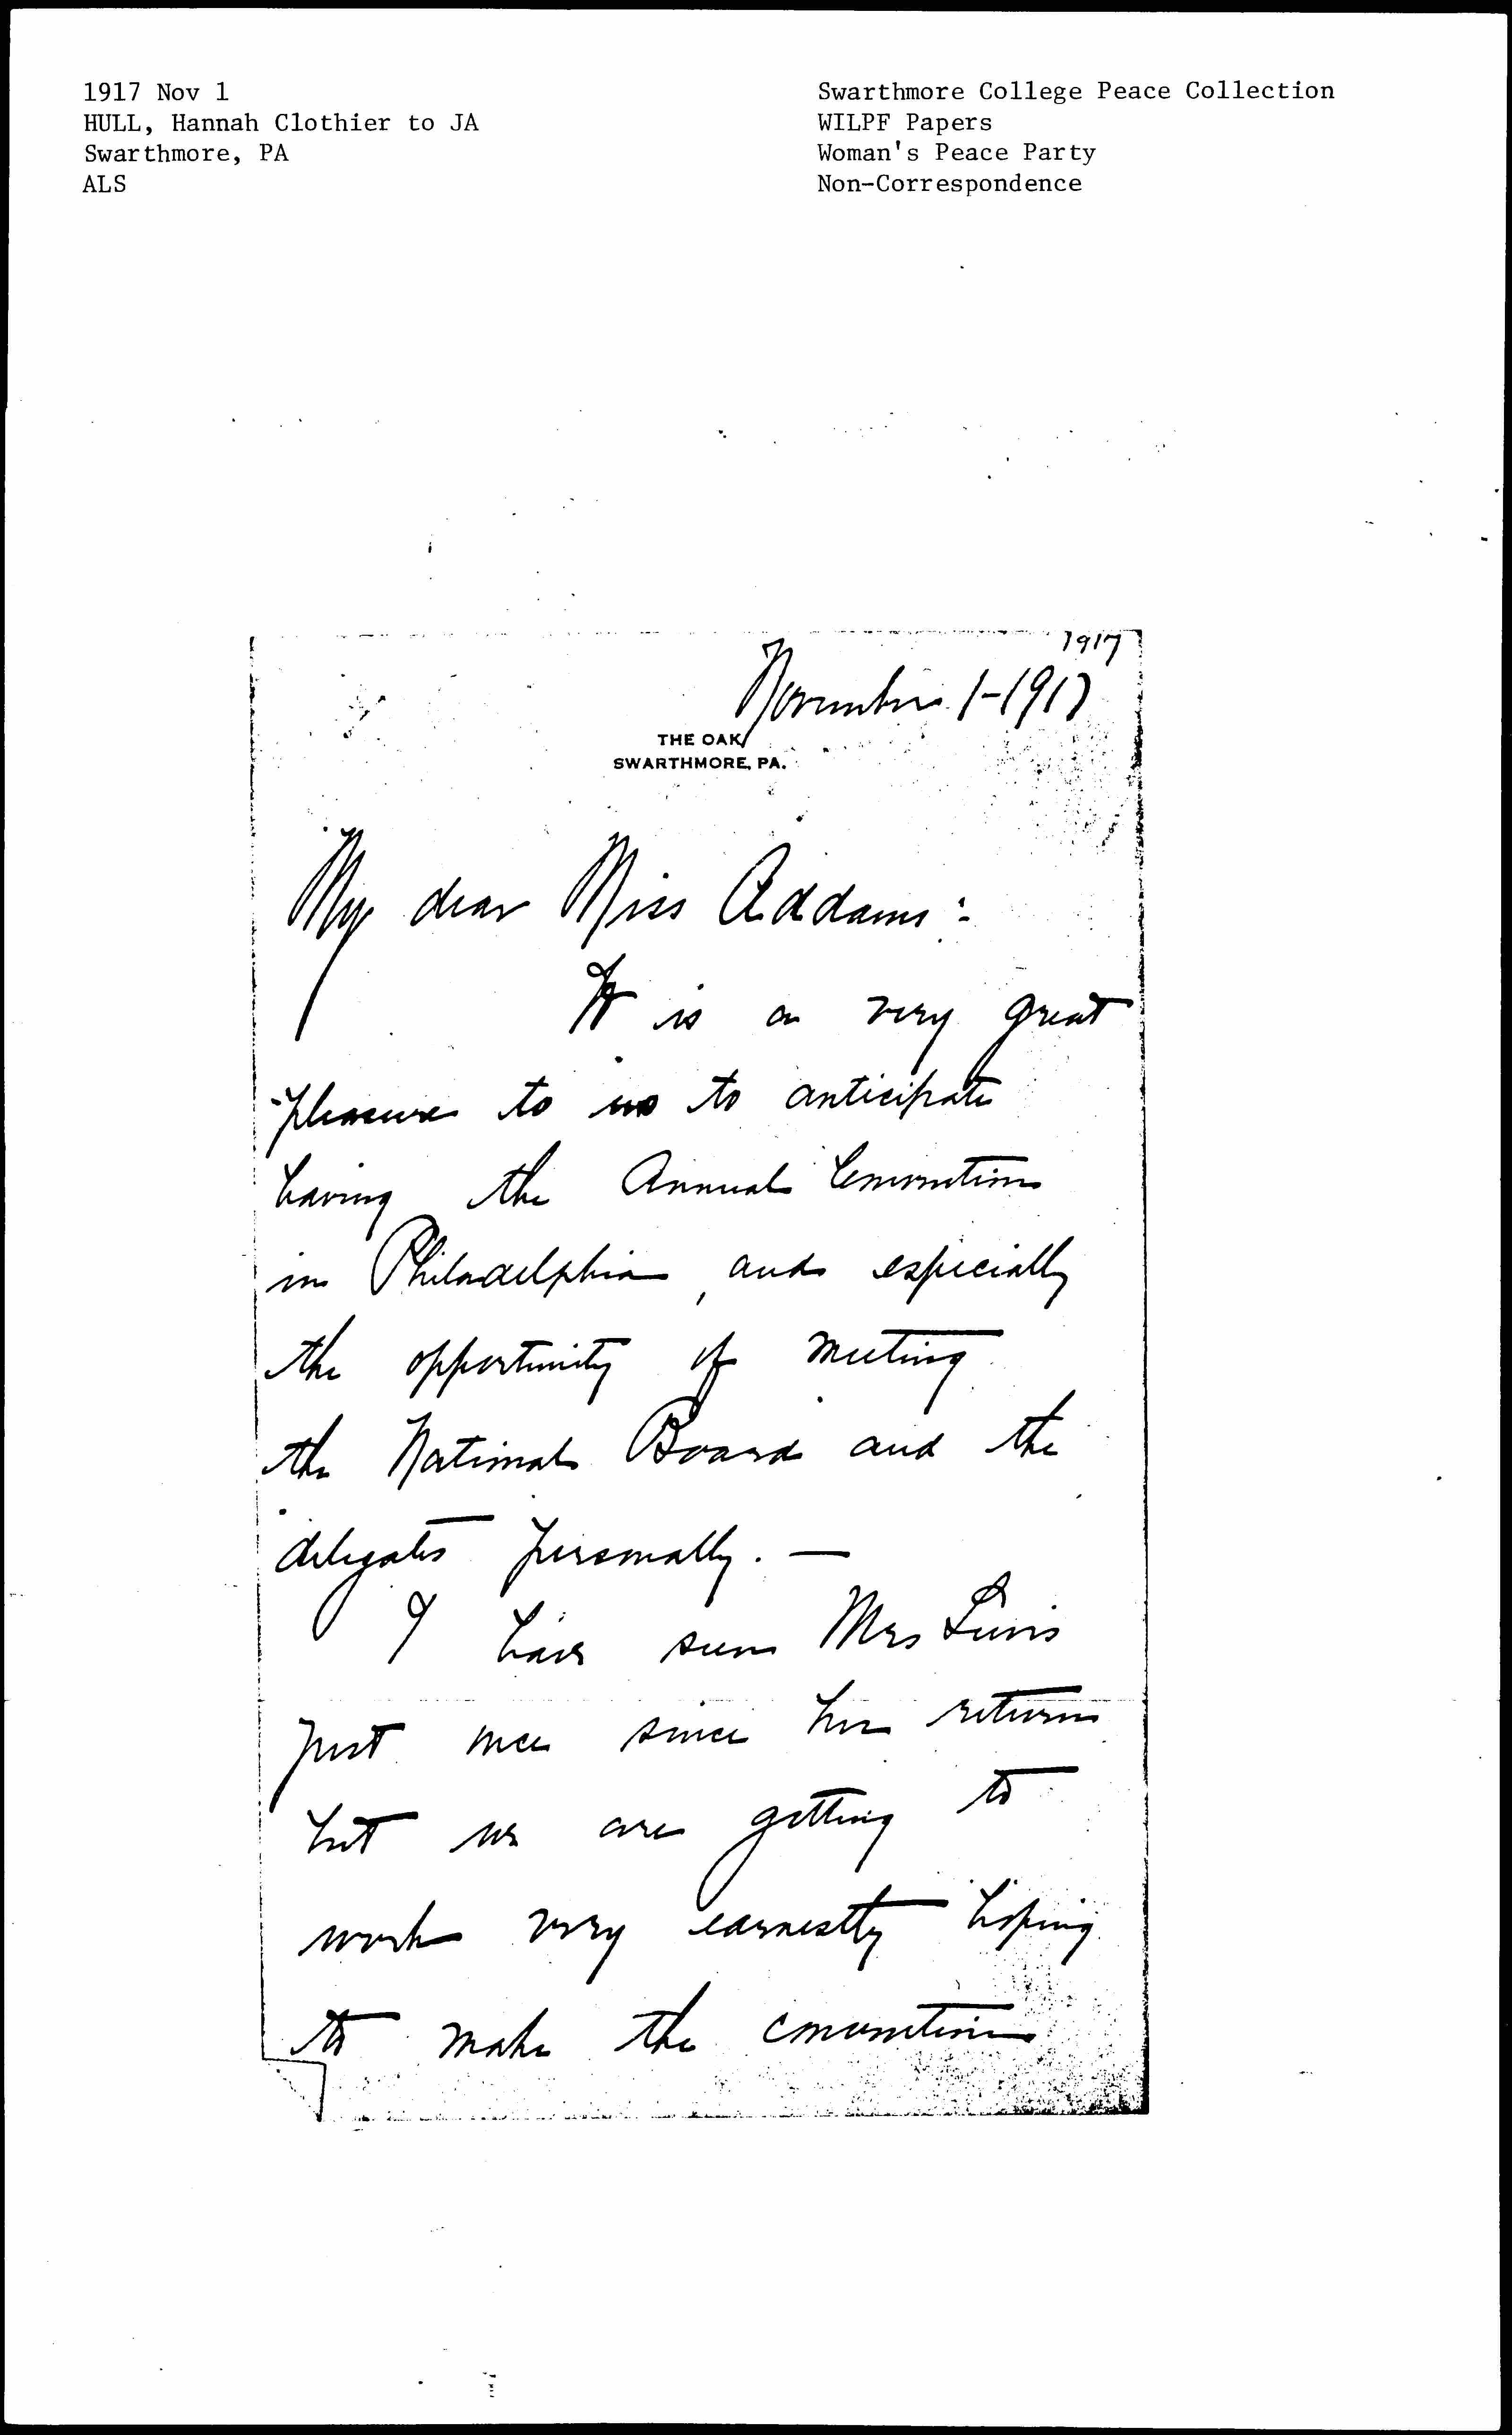 1917 Nov 1
HULL, Hannah Clothier to JA
Swarthmore, PA
ALS
Swarthmore College Peace Collection
WILPF Papers
Woman's Peace Party
Non-Correspondence
1917
November 1-1917
THE OAK
SWARTHMORE, PA.
My dear Miss Addams:-
It is a very great
pleasure to us to anticipate
having the Annual Convention
in Philadelphia, and especially
the opportunity of meeting
the National Board and the
delegates personally. —
I have seen Mrs Lewis
just once since her return
but we are getting to
work very earnestly hoping
to make the convention